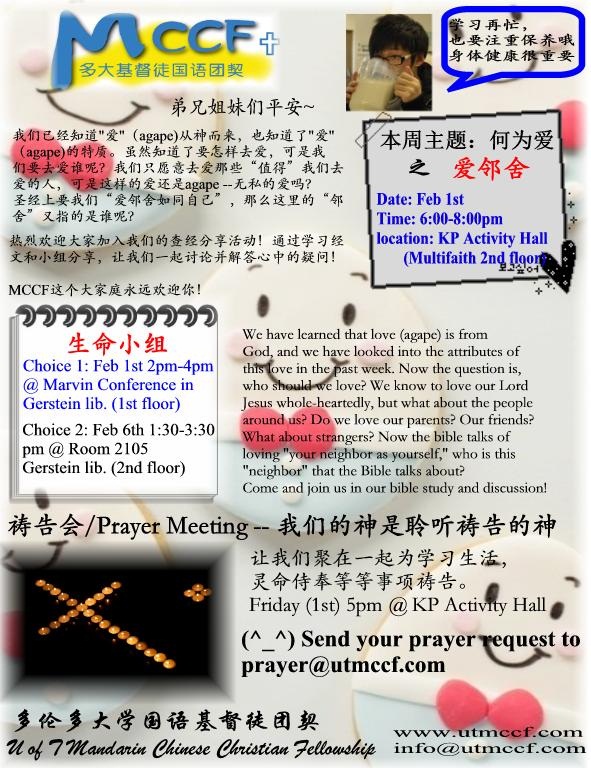 MCCF
多大基督徒国语团契
学习再忙，
也要注重保养哦
身体健康很重要
弟兄姐妹们平安~
我们已经知道"爱"（agape)从神而来，也知道了"爱"
（agape)的特质。虽然知道了要怎样去爱，可是我
们要去爱谁呢？我们只愿意去爱那些“值得”我们去
爱的人，可是这样的爱还是agape --无私的爱吗？
圣经上要我们“爱邻舍如同自己”，那么这里的“邻
舍”又指的是谁呢？
热烈欢迎大家加入我们的查经分享活动！通过学习经
文和小组分享，让我们一起讨论并解答心中的疑问！
MCCF这个大家庭永远欢迎你！
本周主题：何为爱
之 爱邻舍
Date: Feb 1st
Time: 6:00-8:00pm
location: KP Activity Hall
(Multifaith 2nd floor)
보고싶어
生命小组
Choice 1: Feb 1st 2pm-4pm
@ Marvin Conference in
Gerstein lib. (1st floor)
Choice 2: Feb 6th 1:30-3:30
pm @ Room 2105
Gerstein lib. (2nd floor)
We have learned that love (agape) is from
God, and we have looked into the attributes of
this love in the past week. Now the question is,
who should we love? We know to love our Lord
Jesus whole-heartedly, but what about the people
around us? Do we love our parents? Our friends?
What about strangers? Now the bible talks of
loving "your neighbor as yourself," who is this
"neighbor" that the Bible talks about?
Come and join us in our bible study and discussion!
祷告会/Prayer Meeting -- 我们的神是聆听祷告的神
让我们聚在一起为学习生活，
灵命侍奉等等事项祷告。
Friday (1st) 5pm @ KP Activity Hall
(^_^) Send your prayer request to
prayer@utmccf.com
多伦多大学国语基督徒团契
U of T Mandarin Chinese Christian Fellowship
www.utmccf.com
info@utmccf.com